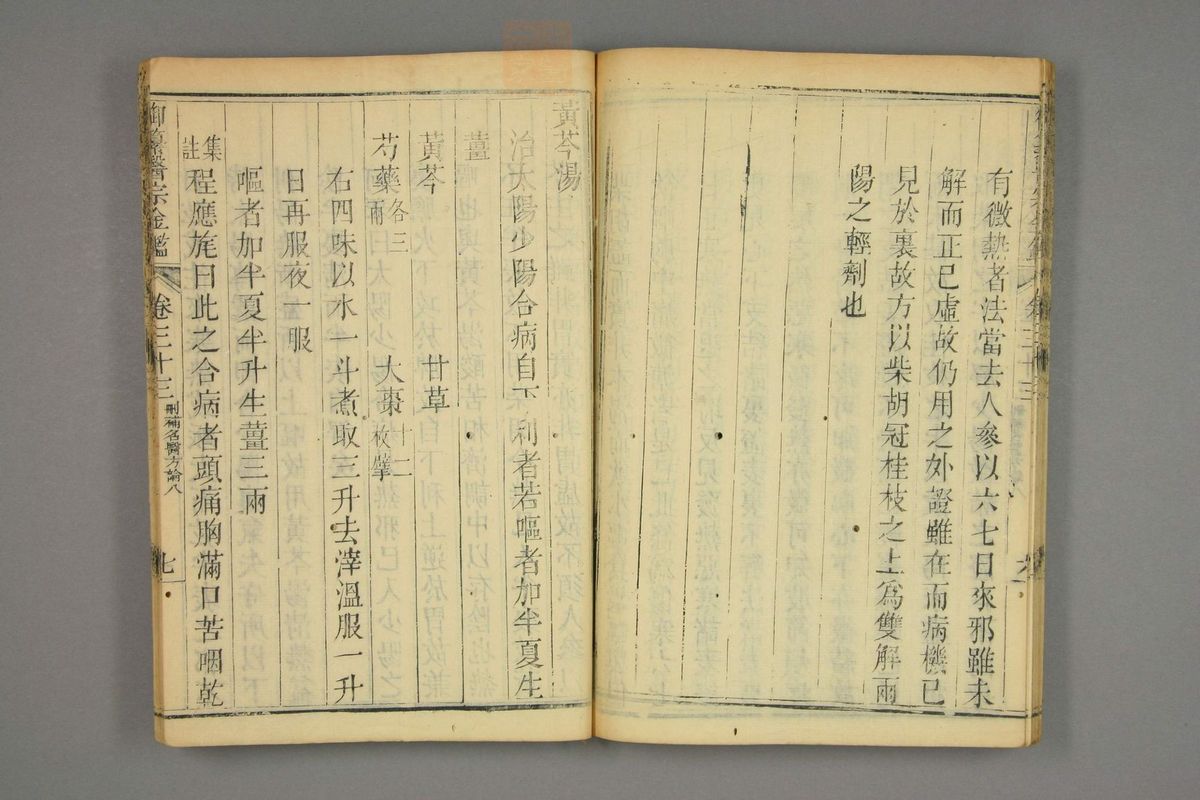 有微熱者法當去人參以六七日來邪雖未
解而正已虛故仍用之外證雖在而病機已
見於裏故方以柴胡冠桂枝之上爲雙解兩
陽之輕劑也
黃芩湯
治太陽少陽合病自下利者若嘔者加半夏生
薑
黃芩 甘草
芍藥各三兩 大棗十二枚擘
右四味以水一斗煮取三升去滓溫服一升
日再服夜一服
嘔者加半夏半升生薑三兩
集註程應旄曰此之合病者頭痛胸滿口苦咽乾
御纂醫宗金鑑 卷三十三 刪補名醫方論八 七